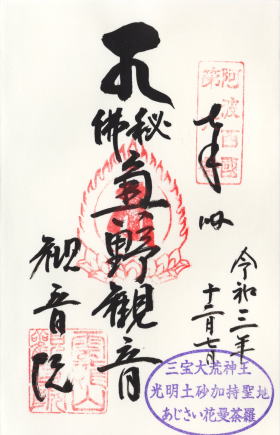 奉拝
令和三年
十二月七日
秘佛
真野観音
観音院
阿波西國
三宝大荒神王
光明土砂加持聖地
あじさい花曼荼羅